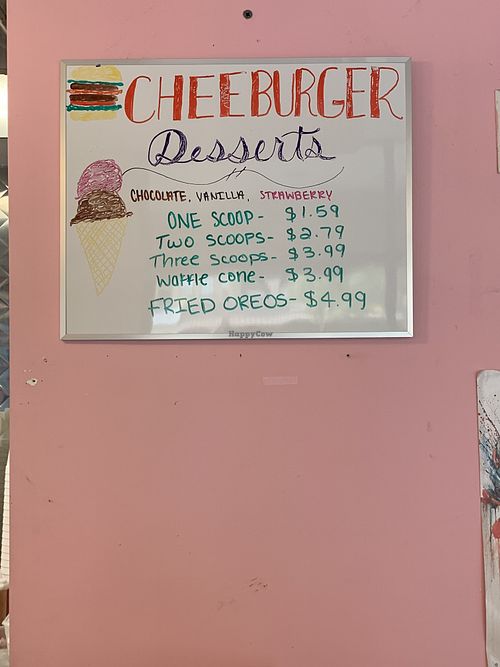 CHEEBURGER
Desserts
CHOCOLATE, VANILLA, STRAWBERRY
ONE SCOOP- $1.59
Two SCOOPS- $2.79
Three scoops- $3.99
Waffle cone- $3.99
FRIED OREOS- $4.99
HappyCow